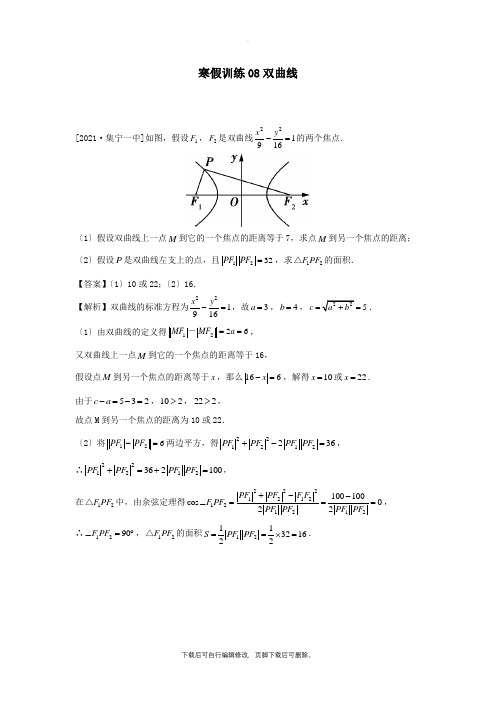 寒假训练08双曲线
[2021·集宁一中]如图，假设F₁，F₂是双曲线x²/9－y²/16=1的两个焦点．
P y F₁ O F₂ x
〔1〕假设双曲线上一点M到它的一个焦点的距离等于7，求点M到另一个焦点的距离；
〔2〕假设P是双曲线左支上的点，且|PF₁||PF₂|=32，求△F₁PF₂的面积．
【答案】〔1〕10或22；〔2〕16．
【解析】双曲线的标准方程为x²/9－y²/16=1，故a=3，b=4，c=√(a²+b²)=5．
〔1〕由双曲线的定义得||MF₁|－|MF₂||=2a=6，
又双曲线上一点M到它的一个焦点的距离等于16，
假设点M到另一个焦点的距离等于x，那么|16－x|=6，解得x=10或x=22．
由于c－a=5－3=2，10>2，22>2，
故点M到另一个焦点的距离为10或22．
〔2〕将||PF₁|－|PF₂||=6两边平方，得|PF₁|²+|PF₂|²－2|PF₁||PF₂|=36，
∴|PF₁|²+|PF₂|²=36+2|PF₁||PF₂|=100，
在△F₁PF₂中，由余弦定理得cos∠F₁PF₂=(|PF₁|²+|PF₂|²－|F₁F₂|²)/(2|PF₁||PF₂|)=(100－100)/(2|PF₁||PF₂|)=0，
∴∠F₁PF₂=90°，△F₁PF₂的面积S=1/2|PF₁||PF₂|=1/2×32=16．
下载后可自行编辑修改，页脚下载后可删除。